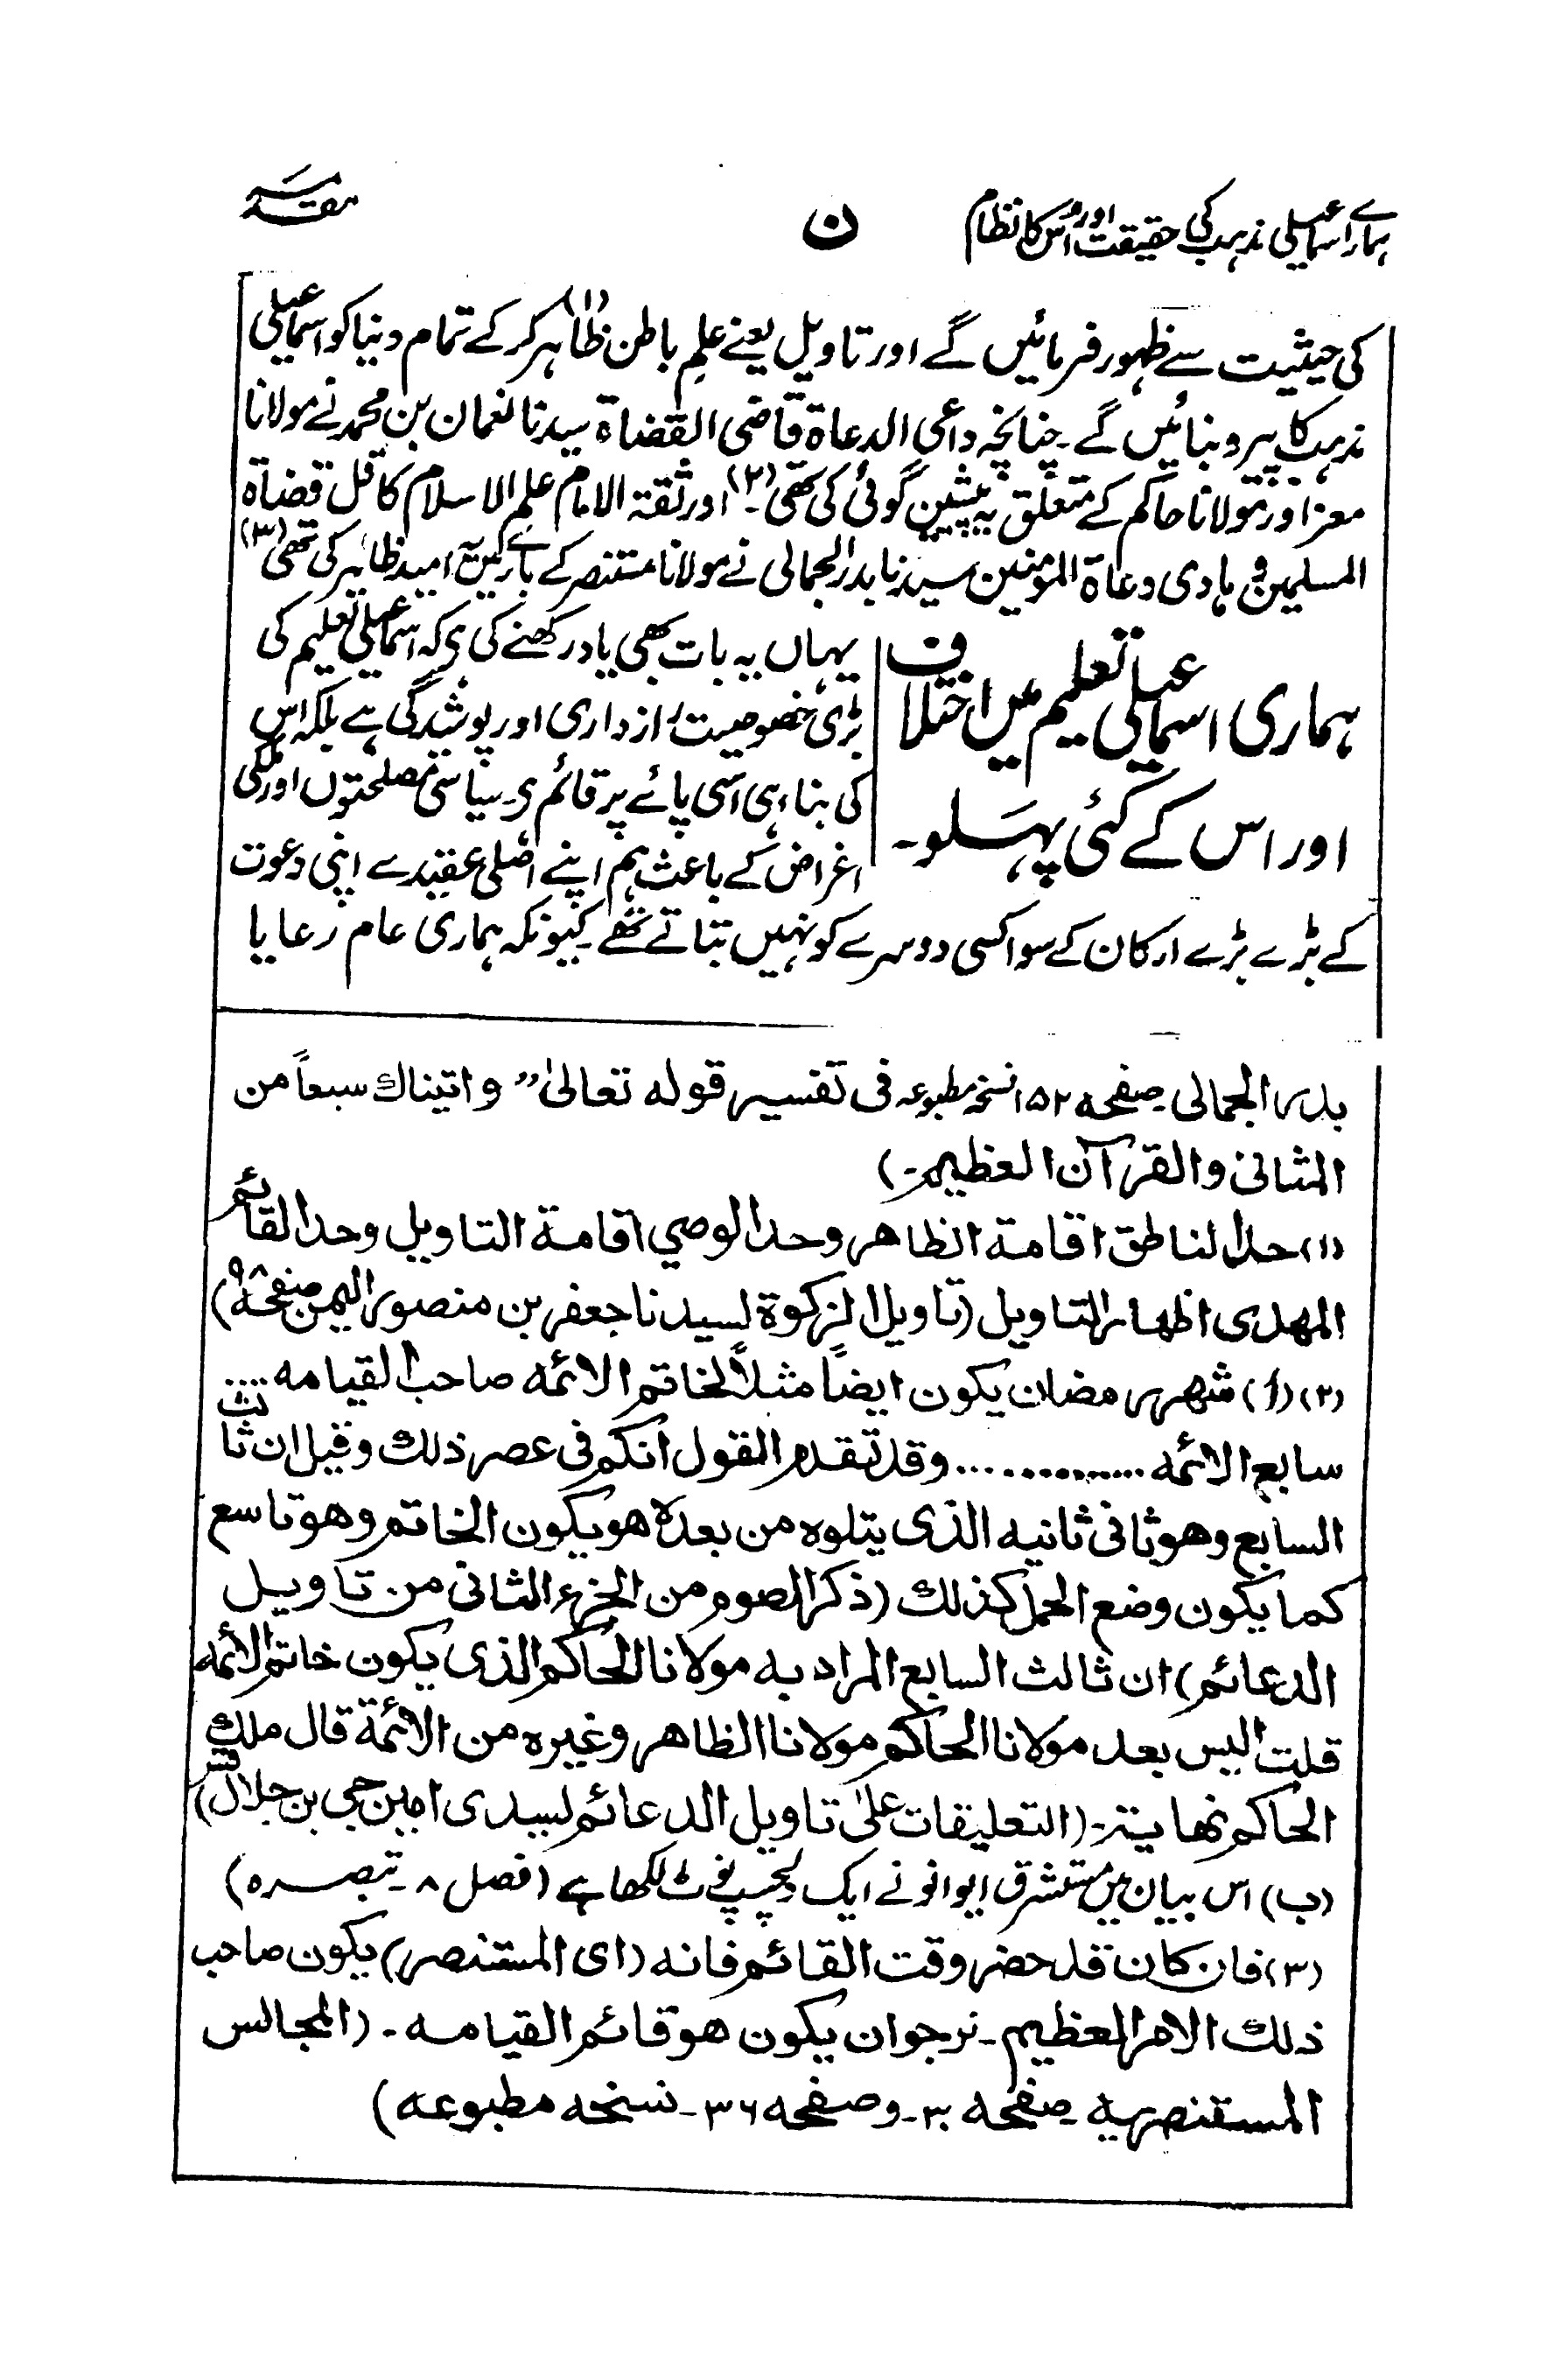 ہمارے اسماعیلی مذہب کی حقیقت اور اُس کا نظام
ن
مقدمہ
کی حیثیت سے ظہور فرمائیں گے اور تاویل یعنے علمِ باطن ظاہر(۱) کر کے تمام دنیا کو اسماعیلی
مذہب کا پیرو بنائیں گے۔ چنانچہ داعی الدعاۃ قاضی القضاۃ سیدنا نعمان بن محمد نے مولانا
معز اور مولانا حاکم کے متعلق یہ پیشین گوئی کی تھی۔(۲) اور ثقۃ الامام علم الاسلام کافل قضاۃ
المسلمین و ہادی دعاۃ المومنین سیدنا بدر الجمالی نے مولانا مستنصر کے بارے میں یہ امید ظاہر کی تھی(۳)
ہماری اسماعیلی تعلیم میں اختلاف
اور اس کے کئی پہلو۔
یہاں یہ بات بھی یاد رکھنے کی ہے کہ اسماعیلی تعلیم کی
بڑی خصوصیت رازداری اور پوشیدگی ہے بلکہ اس
کی بناء ہی اسی پائے پر قائم ہے۔ سیاسی مصلحتوں اور ملکی
اغراض کے باعث ہم اپنے اصلی عقیدے اپنی دعوت
کے بڑے بڑے ارکان کے سوا کسی دوسرے کو نہیں بتاتے تھے۔ کیونکہ ہماری عام رعایا
بدر الجمالی۔ صفحہ ۱۵۲ نسخہ مطبوعہ فی تفسیر قوله تعالیٰ” واتیناك سبعاً من
المثانی والقرآن العظیم۔)
(۱) حد الناطق اقامة الظاهر وحد الوصي اقامة التاویل وحد القائم
المهدی اظهار التاویل (تاویل الزکوة لسیدنا جعفر بن منصور الیمن صفحه ۹۸)
(۲) (أ) شهر رمضان یکون ایضاً مثلاً لخاتم الائمه صاحب القیامه ....
سابع الائمه .............. وقد تقدم القول انکم فی عصر ذلك وقیل ان ثالث
السابع وهو ثانی ثانیه الذی یتلوه من بعده هو یکون الخاتم وهو تاسع
کما یکون وضع الحمل کذلك (ذکر الصوم من الجزء الثانی من تاویل
الدعائم) ان ثالث السابع المراد به مولانا الحاکم الذی یکون خاتم الائمه
قلت الیس بعد مولانا الحاکم مولانا الظاهر وغیره من الائمة قال ملك
الحاکم نهایة۔ (التعلیقات علیٰ تاویل الدعائم لسیدی امین جی بن جلال)
(ب) اس بیان میں مستشرق ایوانو نے ایک دلچسپ نوٹ لکھا ہے (فصل ۸۔ تبصرہ)
(۳) فان کان قد حضر وقت القائم فانه (ای المستنصر) یکون صاحب
ذلك الامر العظیم۔ نرجو ان یکون هو قائم القیامه۔ (المجالس
المستنصریه صفحه ۳۰۔ وصفحه ۳۶۔ نسخه مطبوعه)